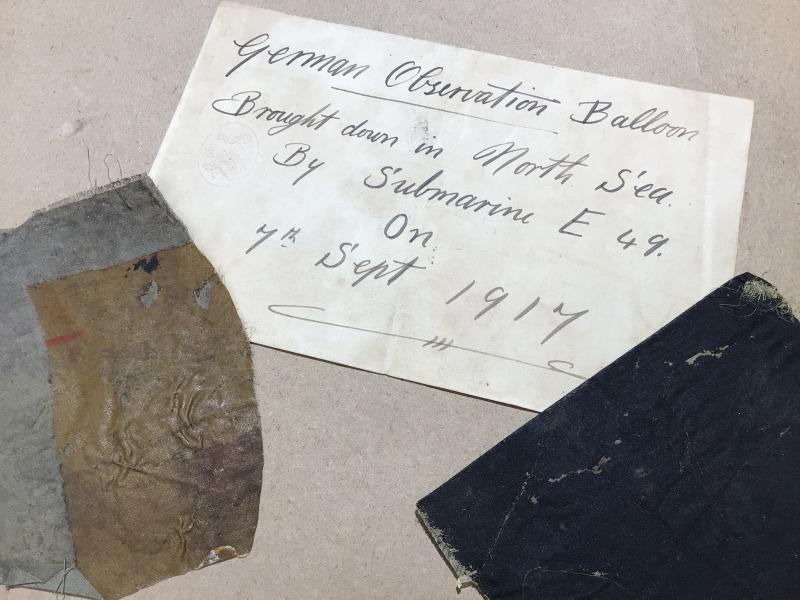 German Observation Balloon
Brought down in North Sea.
By Submarine E 49.
On
7th Sept 1917